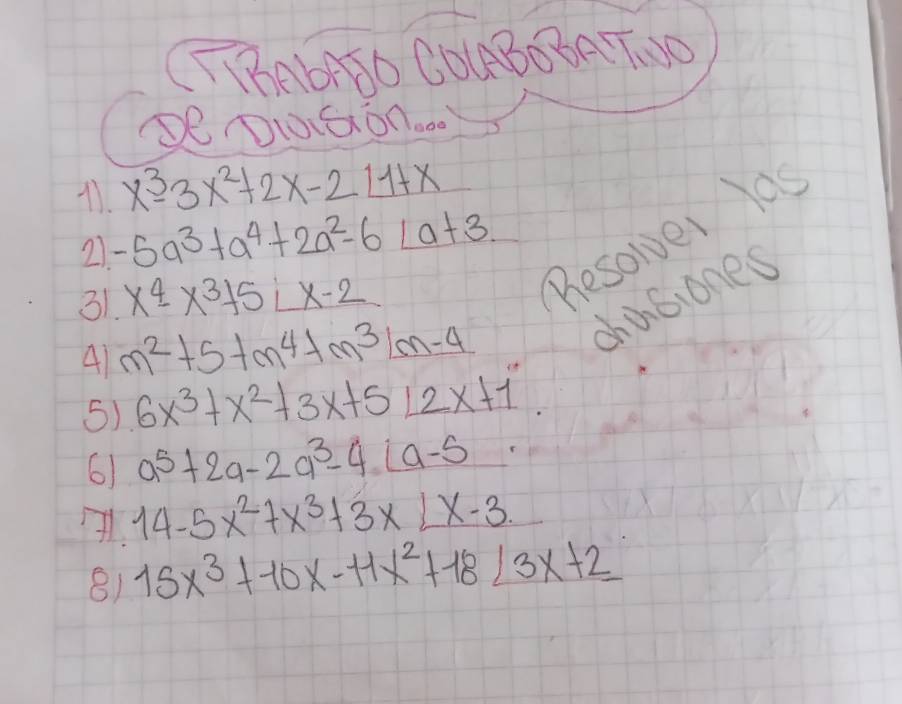 TRABAJO COLABORATIVO
DE DIVISIÓN...
1). x³-3x²+2x-2 ⌊1+x
2) -5a³+a⁴+2a²-6 ⌊a+3
3). x⁴-x³+5 ⌊x-2
4) m²+5+m⁴+m³ ⌊m-4
5) 6x³+x²+3x+5 ⌊2x+1.
6) a⁵+2a-2a³-4 ⌊a-5
7). 14-5x²+x³+3x ⌊x-3.
8) 15x³+10x-11x²+18 ⌊3x+2
Resolver las
divisiones